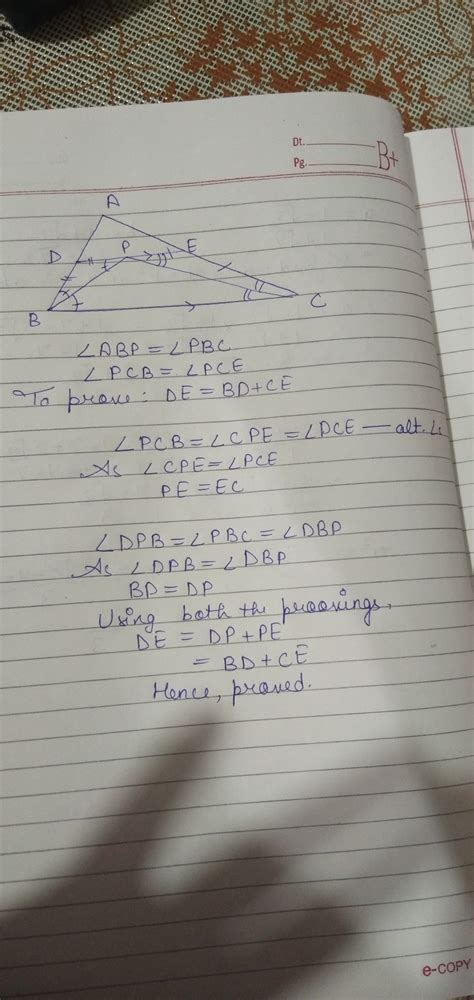 Dt.
B+
Pg.
A
D P E
B C
∠ABP = ∠PBC
∠PCB = ∠PCE
To prove: DE = BD+CE
∠PCB = ∠CPE = ∠PCE — alt. ∠s
As ∠CPE = ∠PCE
PE = EC
∠DPB = ∠PBC = ∠DBP
As ∠DPB = ∠DBP
BD = DP
Using both the proovings,
DE = DP+PE
= BD+CE
Hence, proved.
e-COPY